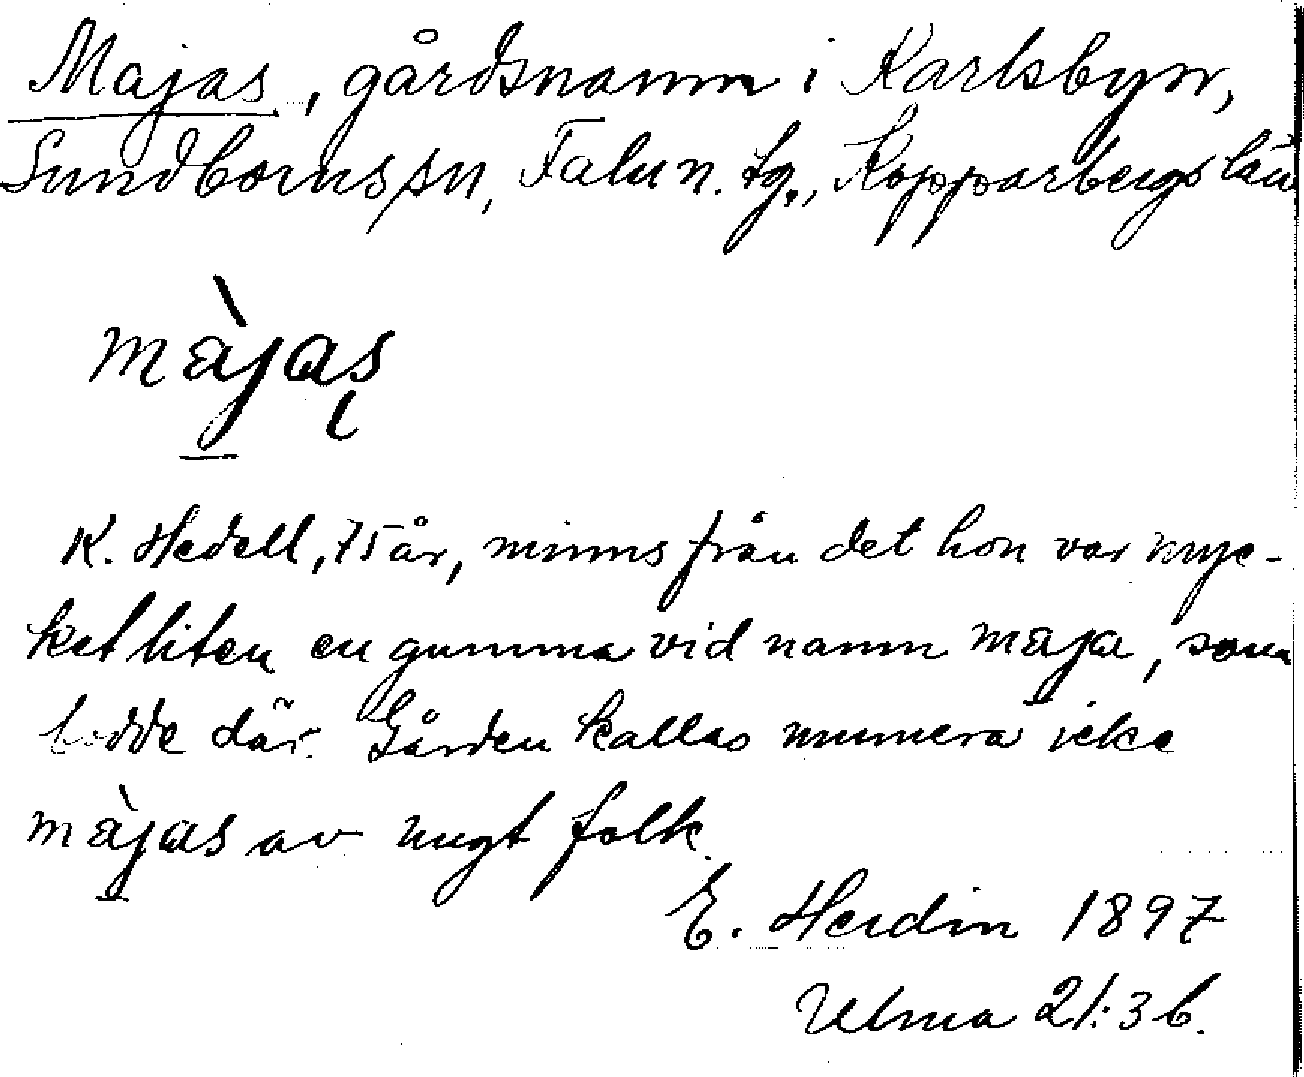 Majas, gårdsnamn i Karlsbyn,
Sundborns sn, Falu n. tg., Kopparbergs län
màjas
K. Hedell, 75 år, minns från det hon var myc-
ket liten en gumma vid namn maja, som
bodde där. Gården kallas numera icke
màjas av ungt folk.
E. Herdin 1897
Ulma 21:3 b.